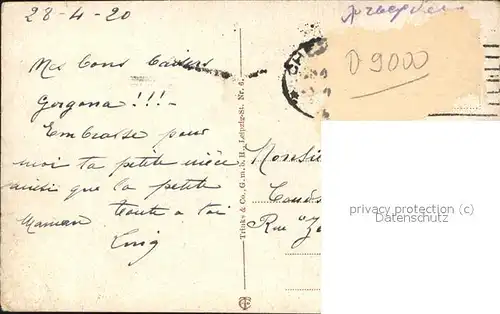 28-4-20
Mes bons baisers
Gorgona !!!-
Embrasse pour
moi ta petite nièce
ainsi que la petite
Maman toute a toi
Trinks & Co., G. m. b. H., Leipzig-St. Nr. 6.
CHE
D 9000
Monsieu
Rue
privacy protection (c)
Datenschutz